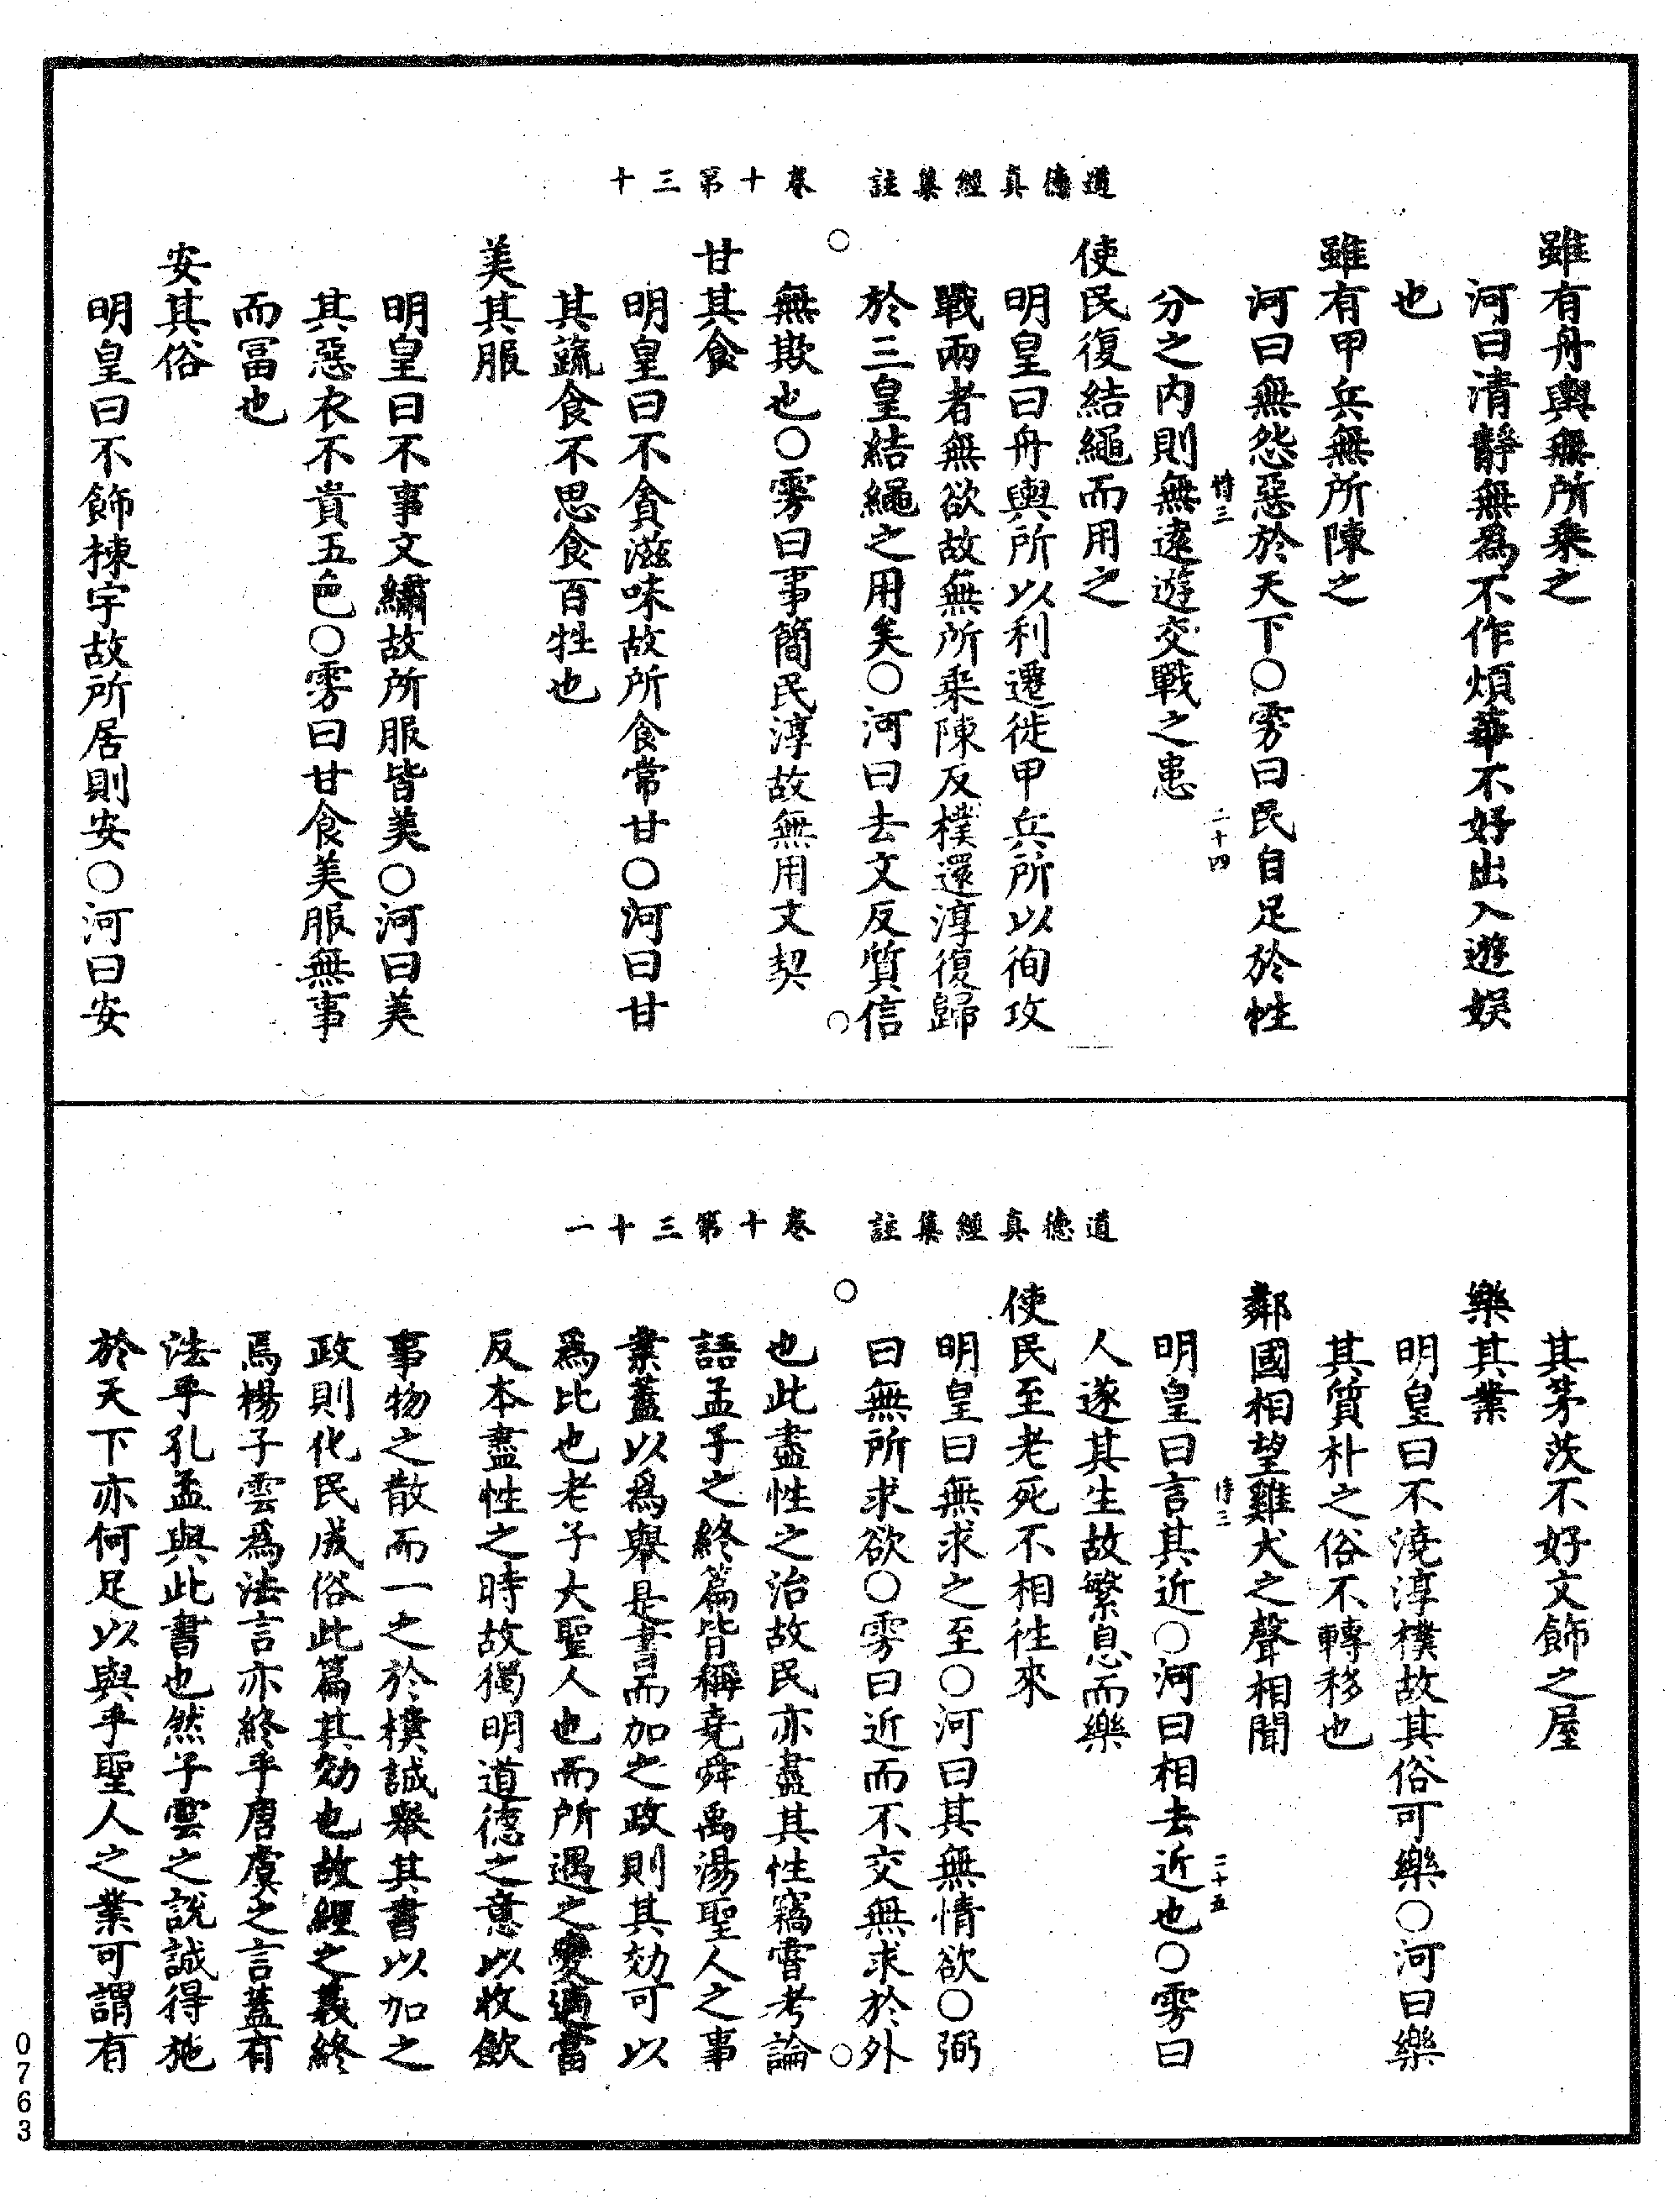 道德真經集註　卷十第三十
雖有舟輿無所乘之
河曰清靜無爲不作煩華不好出入遊娛
也
雖有甲兵無所陳之
河曰無怨惡於天下○雱曰民自足於性
分之內則無遠遊交戰之患
使民復結繩而用之
明皇曰舟輿所以利遷徙甲兵所以徇攻
戰兩者無欲故無所乘陳反樸還淳復歸
於三皇結繩之用矣○河曰去文反質信
無欺也○雱曰事簡民淳故無用文契
甘其食
明皇曰不貪滋味故所食常甘○河曰甘
其蔬食不思食百牲也
美其服
明皇曰不事文繡故所服皆美○河曰美
其惡衣不貴五色○雱曰甘食美服無事
而冨也
安其俗
明皇曰不飾棟宇故所居則安○河曰安
道德真經集註　卷十第三十一
其茅茨不好文飾之屋
樂其業
明皇曰不澆淳樸故其俗可樂○河曰樂
其質朴之俗不轉移也
鄰國相望雞犬之聲相聞
二十五
明皇曰言其近○河曰相去近也○雱曰
人遂其生故繁息而樂
使民至老死不相往來
明皇曰無求之至○河曰其無情欲○弼
曰無所求欲○雱曰近而不交無求於外
也此盡性之治故民亦盡其性竊嘗考論
語孟子之終篇皆稱堯舜禹湯聖人之事
業蓋以爲舉是書而加之政則其効可以
爲比也老子大聖人也而所遇之變適當
反本盡性之時故獨明道德之意以收斂
事物之散而一之於樸誠舉其書以加之
政則化民成俗此篇其効也故經之義終
焉楊子雲爲法言亦終乎唐虞之言蓋有
法乎孔孟與此書也然子雲之說誠得施
於天下亦何足以與乎聖人之業可謂有
0763